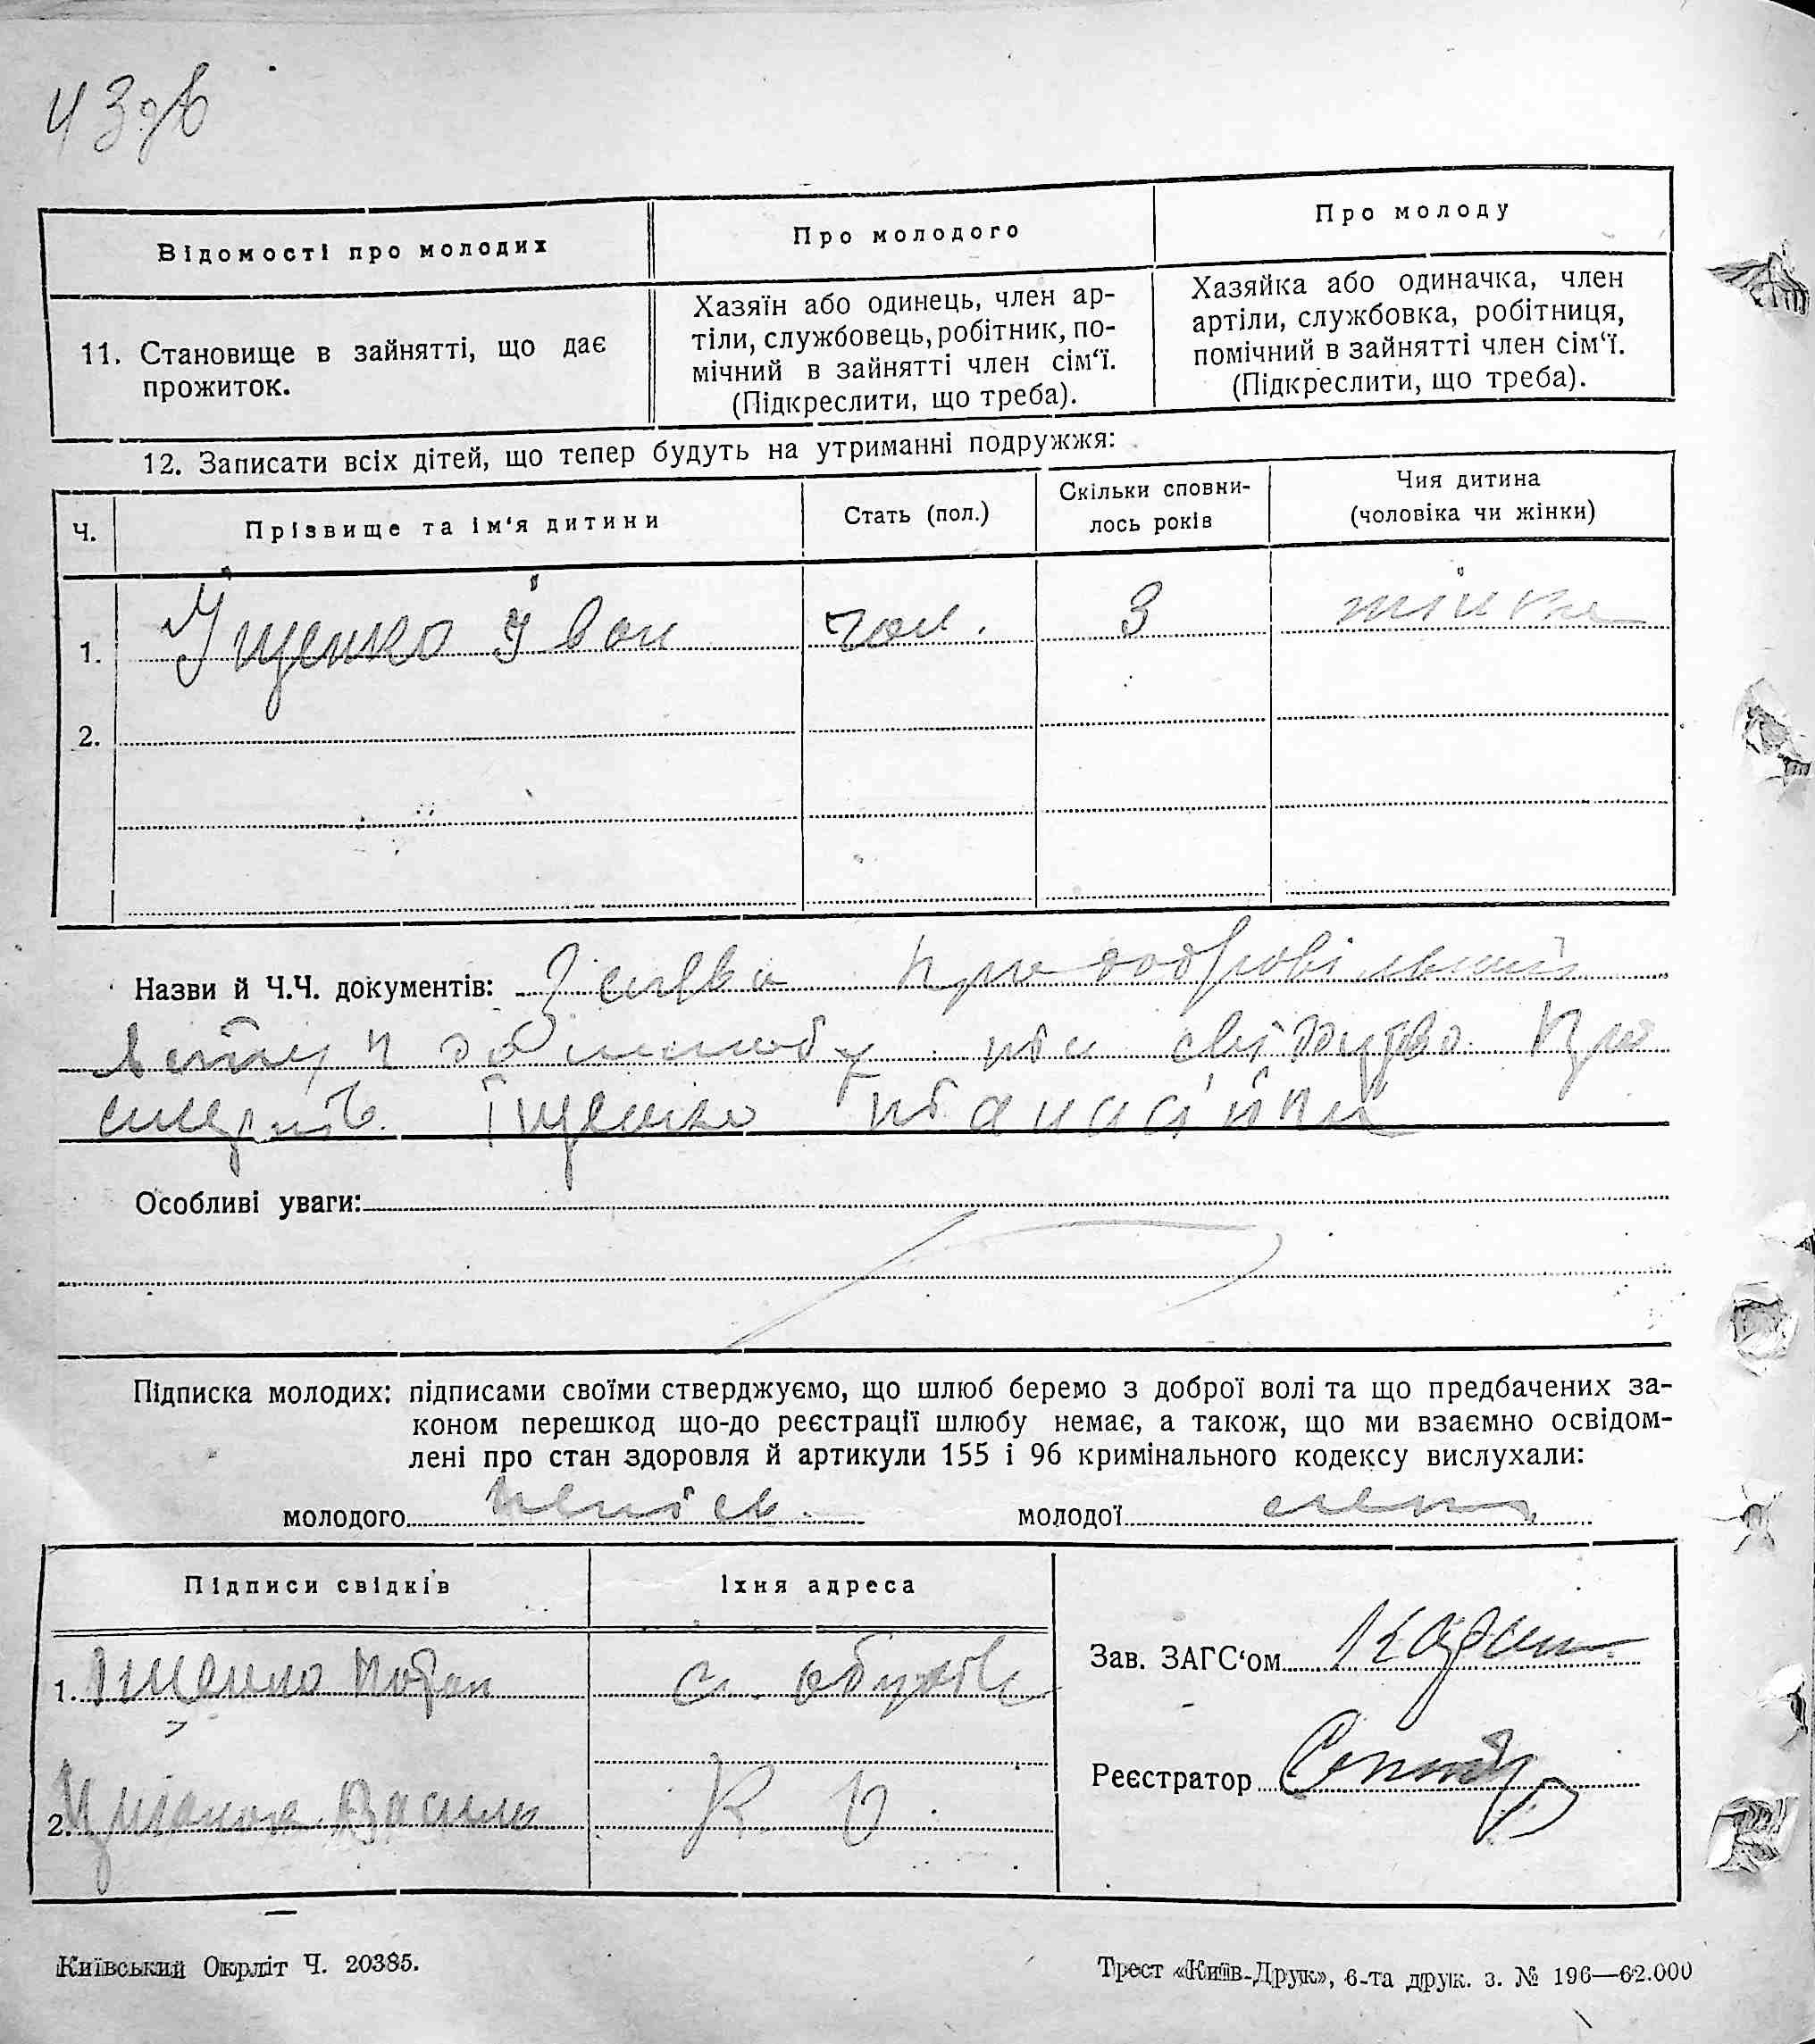 43 зв
Відомості про молодих
Про молодого
Про молоду
11. Становище в зайнятті, що дає
прожиток.
Хазяїн або одинець, член ар-
тіли, службовець, робітник, по-
мічний в зайнятті член сім‘ї.
(Підкреслити, що треба).
Хазяйка або одиначка, член
артіли, службовка, робітниця,
помічний в зайнятті член сім‘ї.
(Підкреслити, що треба).
12. Записати всіх дітей, що тепер будуть на утриманні подружжя:
Ч.
Прізвище та ім‘я дитини
Стать (пол.)
Скільки сповни-
лось років
Чия дитина
(чоловіка чи жінки)
1. Іщенко Іван чол. 3 жінки
2.
Назви й Ч.Ч. документів: Заява про добровільний
вступ до шлюбу та свідоцтво про
смерть Іщенко
Особливі уваги:
Підписка молодих: підписами своїми стверджуємо, що шлюб беремо з доброї волі та що предбачених за-
коном перешкод що-до реєстрації шлюбу немає, а також, що ми взаємно освідом-
лені про стан здоровля й артикули 155 і 96 кримінального кодексу вислухали:
молодого
молодої
Підписи свідків
Їхня адреса
1. Іщенко Потап
2. Василь
Зав. ЗАГС‘ом
Реєстратор
Київський Окрліт Ч. 20385.
Трест «Київ-Друк», 6-та друк. з. № 196—62.000